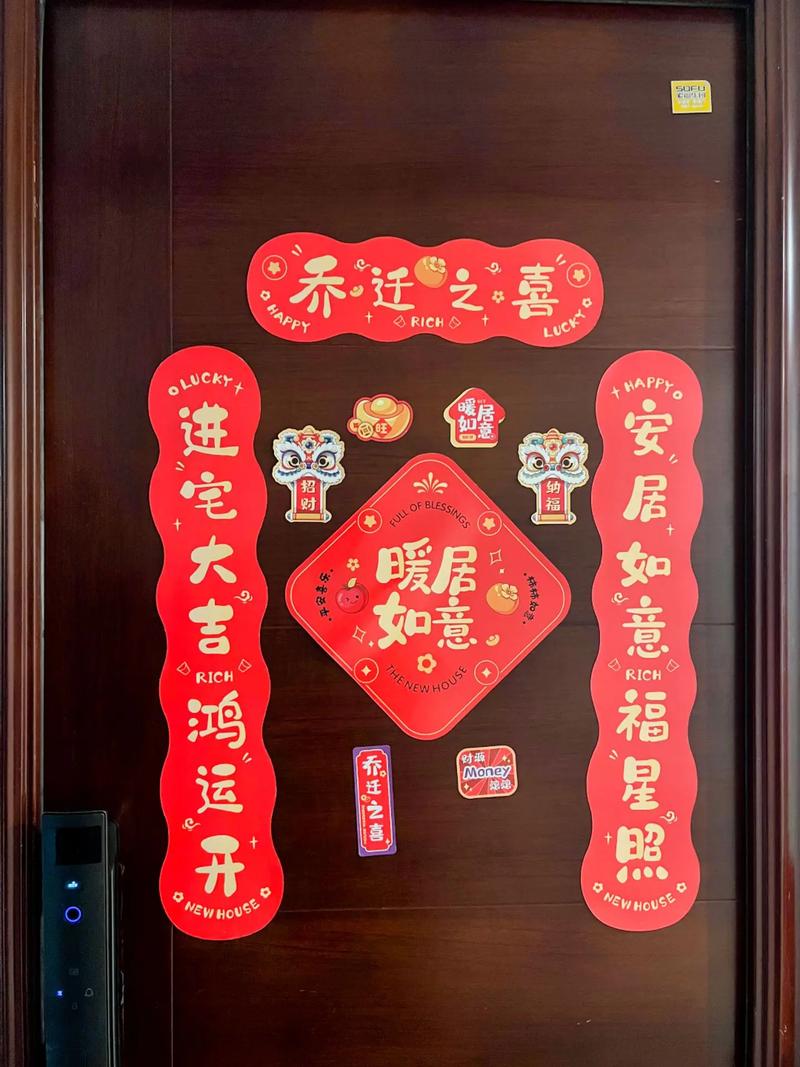 SOFU
乔迁之喜
HAPPY
RICH
LUCKY
LUCKY
进宅大吉
RICH
鸿运开
NEW HOUSE
HAPPY
安居如意
RICH
福星照
NEW HOUSE
旺
暖居
如意
招财
纳福
FULL OF BLESSINGS
暖居
如意
平安喜乐
柿柿如意
THE NEW HOUSE
乔迁之喜
财源
Money
滚滚